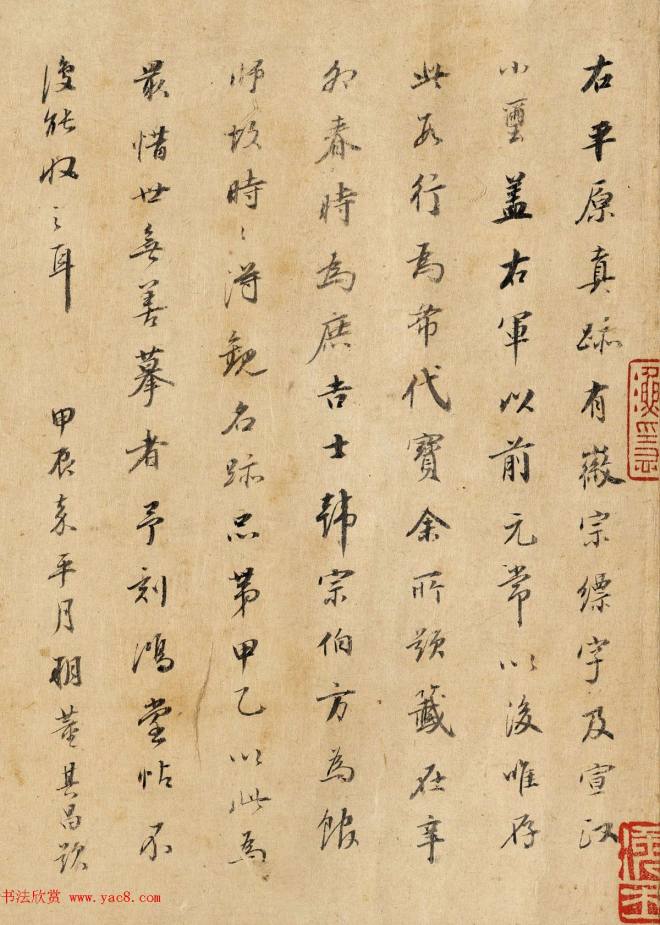 右平原真跡有徽宗縹字及宣政
小璽蓋右軍以前元常以後唯存
此數行為希代寶余所題籤在辛
卯春時為庶吉士韓宗伯方為館
師故時時得觀名跡品第甲乙以此為
最惜世無善摹者予刻鴻堂帖不
復能收之耳 甲辰嘉平月朔董其昌題
书法欣赏 www.yac8.com